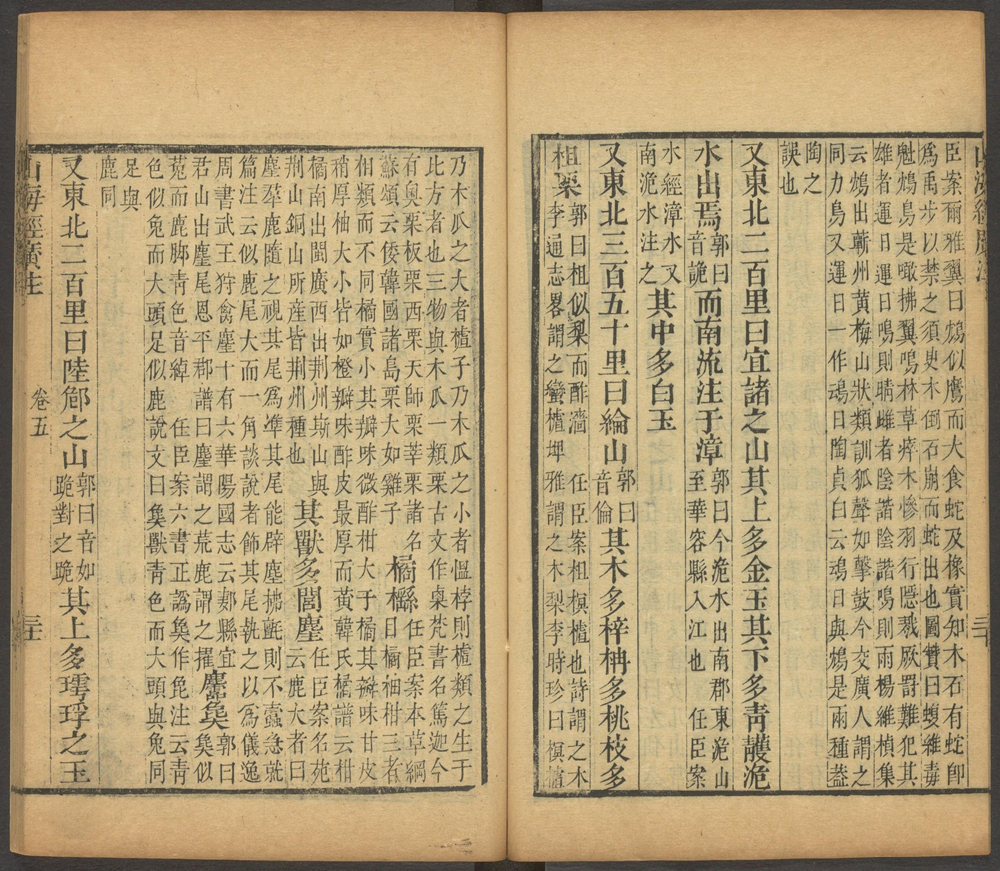 山海經廣注
三十
臣案爾雅翼曰鴆似鷹而大食蛇及橡實知木石有蛇卽
爲禹步以禁之須臾木倒石崩而蛇出也圖贊曰蝮維毒
魁鴆鳥是噉拂翼鳴林草瘁木慘羽行隱戮厥罰難犯其
雄者運日運日鳴則晴雌者陰諧陰諧鳴則雨楊維楨集
云鴆出蘄州黃梅山狀類訓狐聲如擊鼓今交廣人謂之
同力鳥又運日一作䲰日陶貞白云䲰日與鴆是兩種葢
陶之
誤也
又東北二百里曰宜諸之山其上多金玉其下多青䨼洈
水出焉郭曰音詭而南流注于漳郭曰今洈水出南郡東洈山至華容縣入江也 任臣案
水經漳水又南洈水注之其中多白玉
又東北三百五十里曰綸山郭曰音倫其木多梓枏多桃枝多
柤栗郭曰柤似棃而酢濇 任臣案柤榠樝也詩謂之木李通志畧謂之蠻樝埤雅謂之木梨李時珍曰榠樝
乃木瓜之大者樝子乃木瓜之小者榲桲則樝類之生于
此方者也三物與木瓜一類栗古文作㮚梵書名篤迦今
有奥栗板栗西栗天師栗莘栗諸名
蘇頌云倭韓國諸島栗大如雞子
橘櫾任臣案本草綱目橘柚柑三者
相類而不同橘實小其瓣味微酢柑大于橘其瓣味甘皮
稍厚柚大小皆如橙瓣味酢皮最厚而黃韓氏橘譜云柑
橘南出閩廣西出荆州斯山與
荆山銅山所産皆荆州種也
其獸多閭麈任臣案名苑云鹿大者曰
麈羣鹿隨之視其尾爲準其尾能辟塵拂氈則不蠹急就
篇注云似鹿尾大而一角談說者飾其尾執之以爲儀逸
周書武王狩禽麈十有六華陽國志云郪縣宜
君山出麈尾恩平郡譜曰麈謂之荒鹿謂之擢
麢㚟郭曰㚟似
菟而鹿脚靑色音綽 任臣案六書正譌㚟作㲋注云靑
色似兔而大頭足似鹿說文曰㚟獸靑色而大頭與兔同
足與
鹿同
又東北二百里曰陸䣀之山郭曰音如跪對之跪其上多㻬琈之玉
山海經廣注
卷五
三十